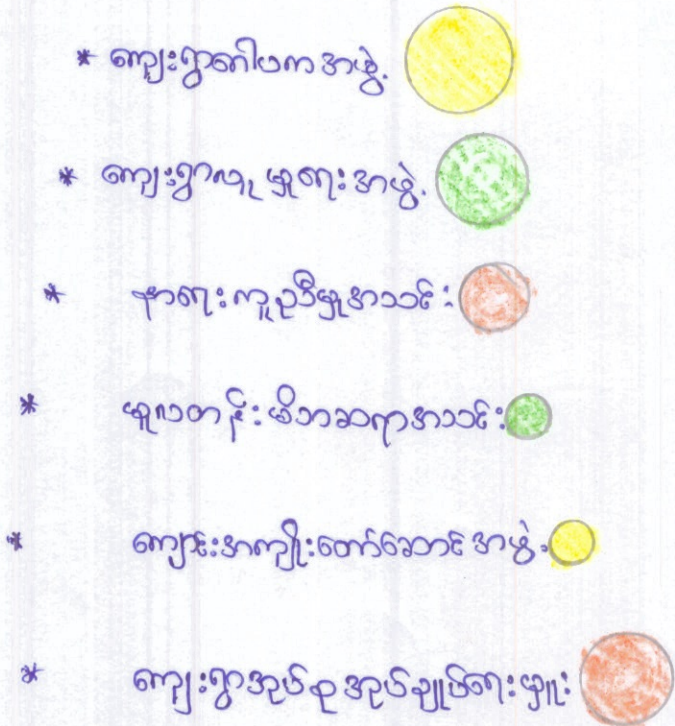 * ကျေးရွာဂေါပကအဖွဲ့
* ကျေးရွာလူမှုရေးအဖွဲ့
* နာရေးကူညီမှုအသင်း
* မူလတန်းမိဘဆရာအသင်း
* ကျောင်းအကျိုးတော်ဆောင်အဖွဲ့
* ကျေးရွာအုပ်စုအုပ်ချုပ်ရေးမှူး